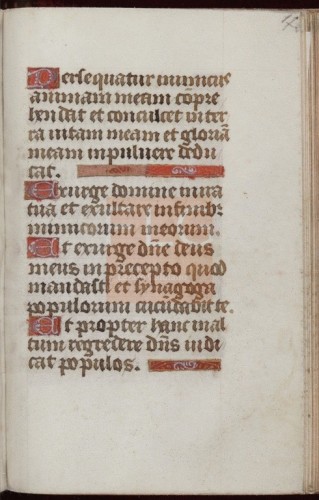 Persequatur inimicus
animam meam cōpre
hendat et conculcet in ter
ra uitam meam et gloriā
meam in puluere dedu
cat.
Exurge domine in ira
tua et exaltare in finibz
inimicorum meorum.
Et exurge dñe deus
meus in precepto quod
mandasti et synagoga
populorum circūdabit te.
Et propter hanc in al
tum regredere dñs iudi
cat populos.